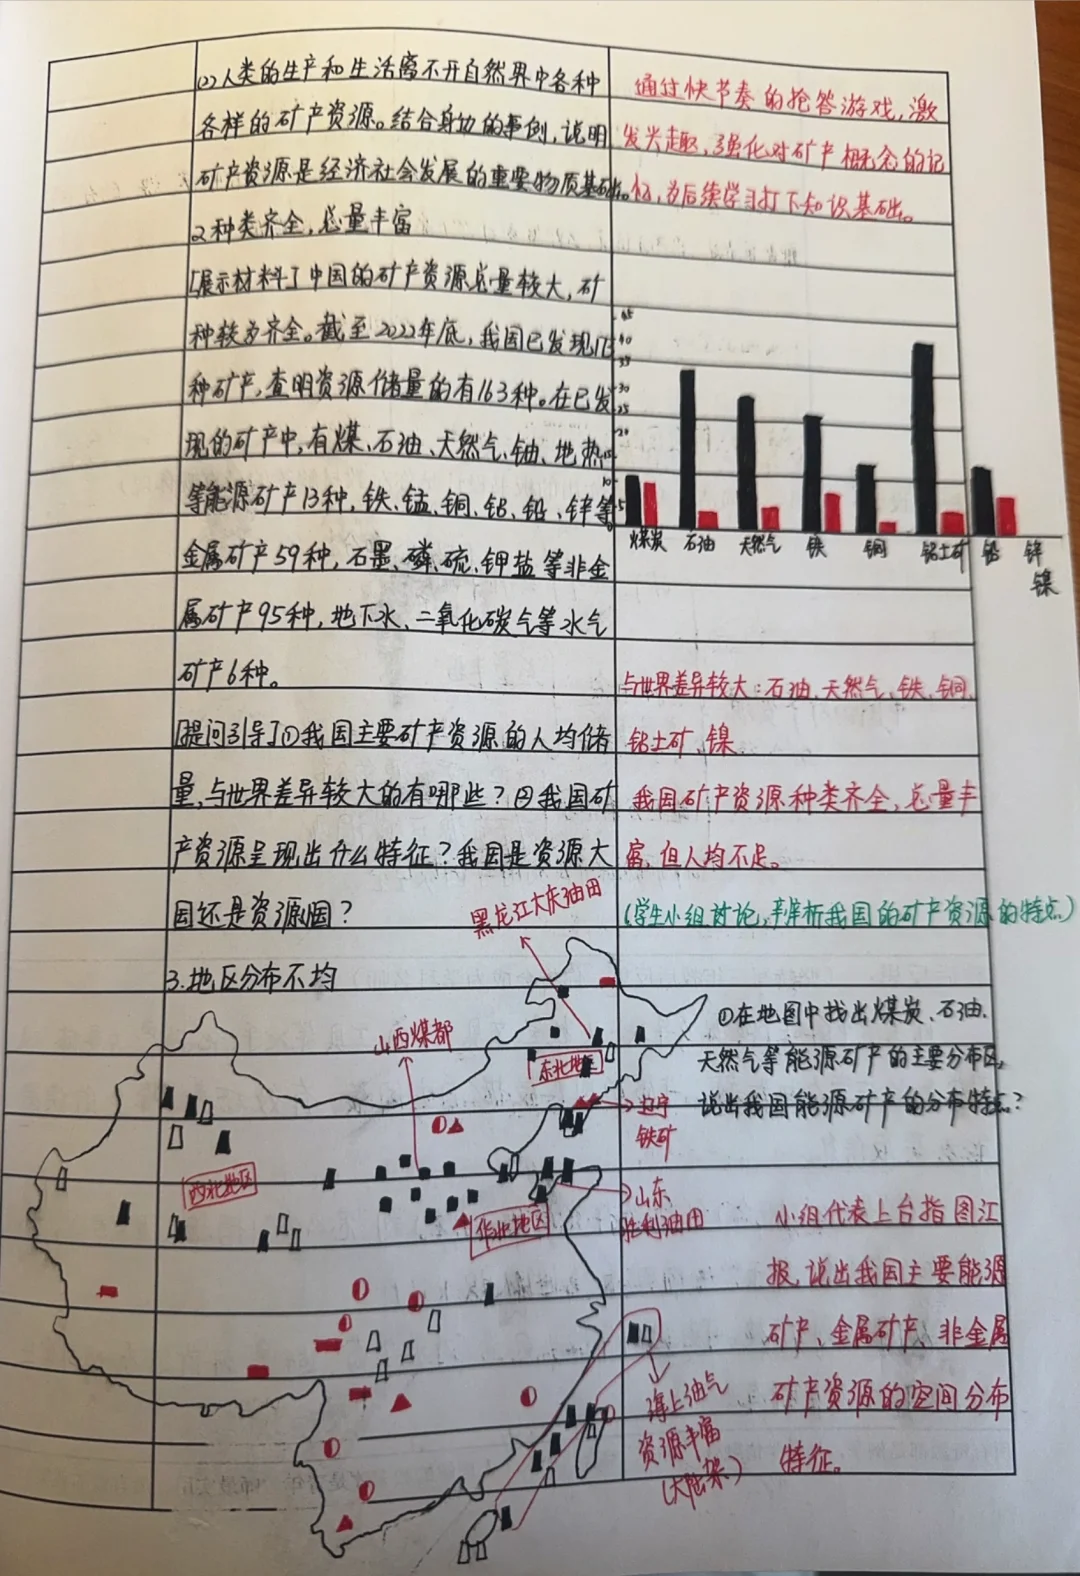 (2)人类的生产和生活离不开自然界中各种
各样的矿产资源。结合身边的事例,说明
矿产资源是经济社会发展的重要物质基础。
2.种类齐全,总量丰富
[展示材料]中国的矿产资源总量较大,矿
种较为齐全。截至2022年底,我国已发现173
种矿产,查明资源储量的有163种。在已发
现的矿产中,有煤、石油、天然气、铀、地热
等能源矿产13种,铁、锰、铜、铝、铅、锌等
金属矿产59种,石墨、磷、硫、钾盐等非金
属矿产95种,地下水、二氧化碳气等水气
矿产6种。
[提问引导]①我国主要矿产资源的人均储
量,与世界差异较大的有哪些?②我国矿
产资源呈现出什么特征?我国是资源大
国还是资源小国?
3.地区分布不均
通过快节奏的抢答游戏,激
发兴趣,强化对矿产概念的记
忆,为后续学习打下知识基础。
45
40
35
30
25
20
15
10
5
0
煤炭 石油 天然气 铁 铜 铝土矿 铅 锌
镍
与世界差异较大:石油、天然气、铁、铜、
铝土矿、镍
我国矿产资源种类齐全,总量丰
富,但人均不足。
(学生小组讨论,辨析我国的矿产资源的特点)
黑龙江大庆油田
山西煤都
东北地区
辽宁
铁矿
西北地区
华北地区
山东
胜利油田
海上油气
资源丰富
(大陆架)
①在地图中找出煤炭、石油、
天然气等能源矿产的主要分布区,
说出我国能源矿产的分布特点?
小组代表上台指图汇
报,说出我国主要能源
矿产、金属矿产、非金属
矿产资源的空间分布
特征。